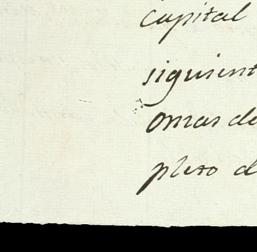 capital
siguient
omas de
pleto d